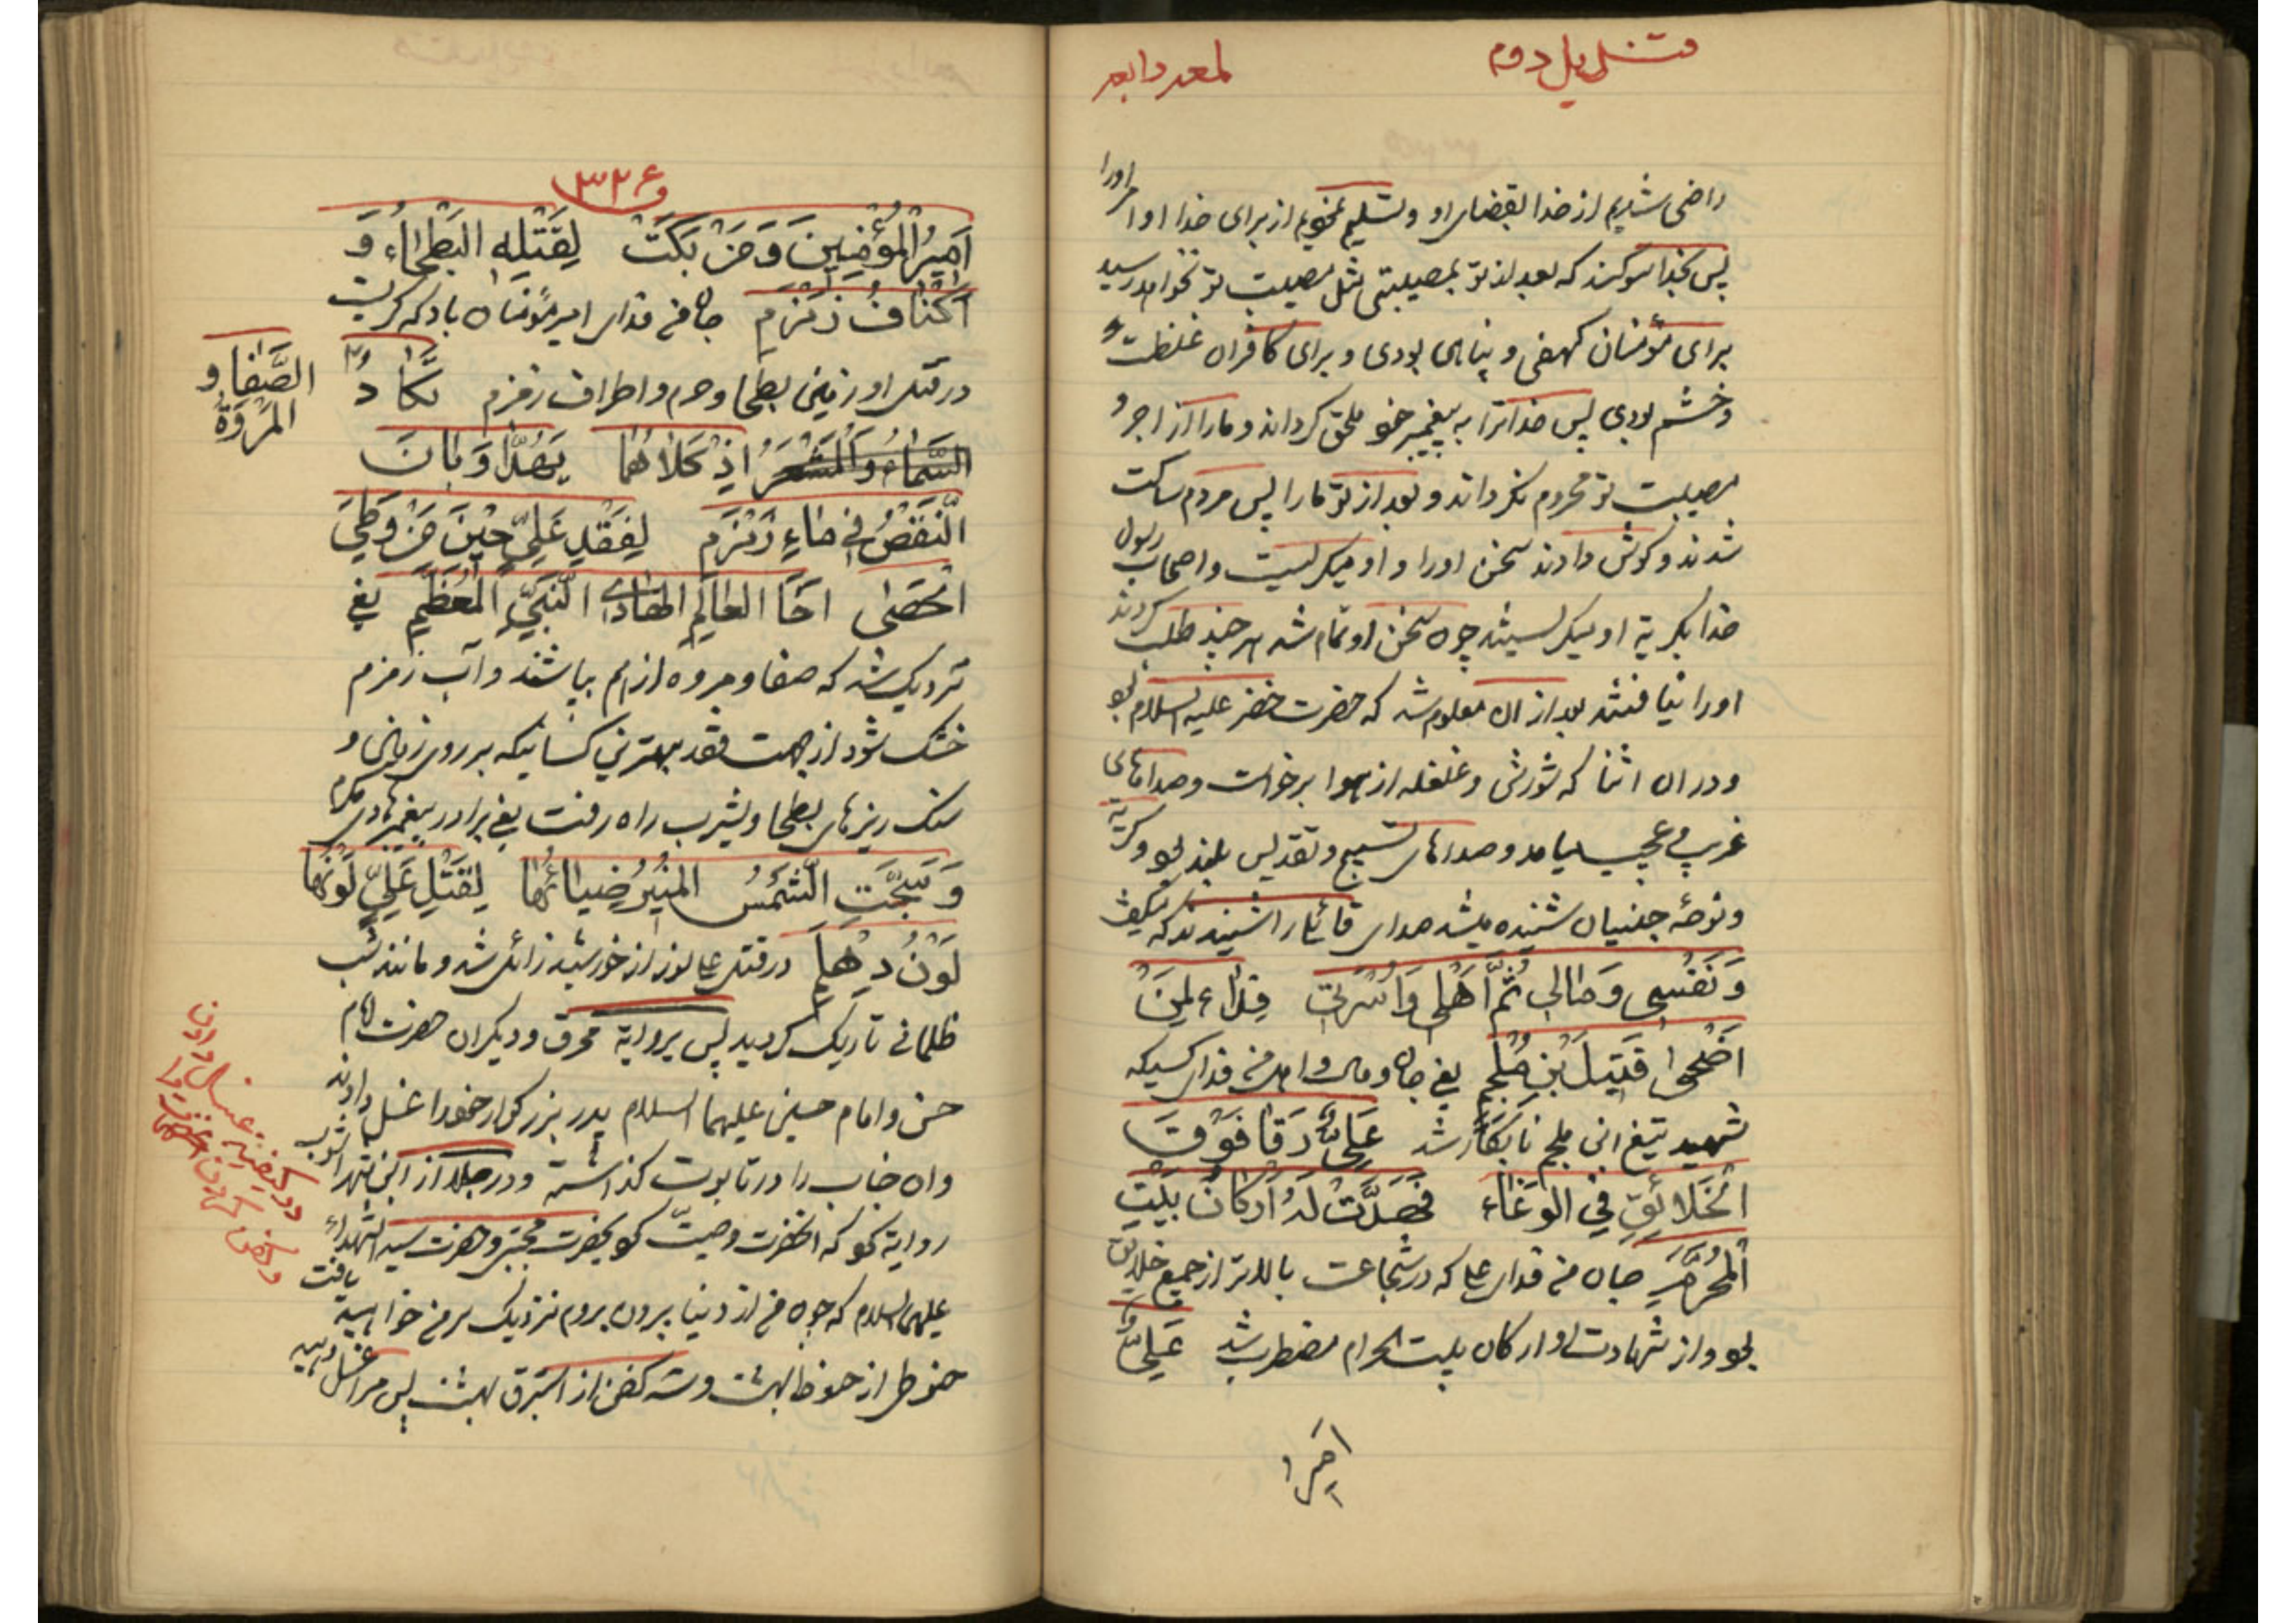 قندیل دوم
لمعه رابعه
راضی شدیم از خدا بقضای او و تسلیم نمودیم از برای خدا امر اورا
پس بخدا سوکند که بعد از تو بمصیبتی مثل مصیبت تو نخواهد رسید
برای مؤمنان کهفی و پناهی بودی و برای کافران غلظت
و خشم بودی پس خدا ترا به پیغمبر خود ملحق کرداند و ما را از اجر
مصیبت تو محروم نکرداند و بعد از تو ما را پس مردم ساکت
شدند و کوش دادند سخن اورا و او میکریست و اصحاب رسول
خدا بکریه او میکریستند چون سخن او تمام شد هر چند طلب کردند
اورا نیافتند بعد از ان معلوم شد که حضرت خضر علیه السلام بود
و در ان اثنا که شورش و غلغله از هوا برخواست و صداهای
غریب و عجیب میامد و صداهای تسبیح و تقدیس بلند بود و کریه
و نوحهٔ جنیان شنیده میشد صدای قائل را شنیدند که میکفت
وَنَفْسِی وَمٰالِی ثُمَّ اَهْلِی وَاُسْرَتِی فِدٰاءٌ لِمَنْ
اَضْحٰی قَتِیلَ بْنِ مُلْجَمٍ یعنی جان و مال و اهل من فدای کسیکه
شهید تیغ ابن ملجم نابکار شد عَلِیٌّ رَقٰا فَوْقَ
الْخَلٰائِقِ فِی الْوَغٰاءِ فَهُدَّتْ لَهُ اَرْکٰانُ بَیْتِ
الْمُحَرَّمِ جان من فدای علی که در شجاعت بالاتر از جمیع خلایق
بود و از شهادت او ارکان بیت الحرام مضطرب شد عَلِیٌّ
امیر
۳۲۶
اَمِیرُ الْمُؤْمِنِینَ وَمَنْ بَکَتْ لِقَتْلِهِ الْبَطْحٰاءُ وَ
اَکْنٰافُ زَمْزَمِ جان من فدای امیر مؤمنان باد که کریست
در قتل او زمین بطحا و حرم و اطراف زمزم یَکٰادُ
الصَّفٰا وَ
الْمَرْوَةُ
السَّمٰاءُ وَالْمَشْعَرُ اِذْ کلاهُمٰا یَهُدّٰا وَبٰانَ
النَّقْصُ فِی مٰاءِ زَمْزَمِ لِفَقْدِ عَلِیٍّ خَیْرَ مَنْ وَطِیَ
الْحَصٰی اَخَا الْعٰالِمِ الْهٰادِی النَّبِیِّ الْمُعَظَّمِ یعنی
نزدیک شد که صفا و مروه از هم بپاشند و آب زمزم
خشک شود از جهت فقد بهترین کسانیکه بر روی زمین و
سنک ریزهای بطحا و یثرب راه رفت یعنی برادر پیغمبر هادی مکرم
وَ الشَّمْسُ الْمُنِیرُ ضِیٰائُهٰا لِقَتْلِ عَلِیٍّ لَوْنُهٰا
لَوْنُ دِهْلَمِ در قتل علی نور از خورشید زائل شد و مانند شب
ظلمانی تاریک کردید پس بروایة محرق و دیکران حضرت امام
حسن و امام حسین علیهما السلام پدر بزرکوار خود را غسل دادند
و ان جناب را در تابوت کذاشته و در جلاء از ابن شهر اشوب
روایة کوید که انحضرت وصیت کرد بحضرت مجتبی و حضرت سید الشهداء
علیهما السلام که چون من از دنیا بیرون بروم نزدیک سر من خواهید یافت
حنوطی از حنوط بهشت و سه کفن از استبرق بهشت پس مرا غسل دهید
در کیفیة غسل دادن